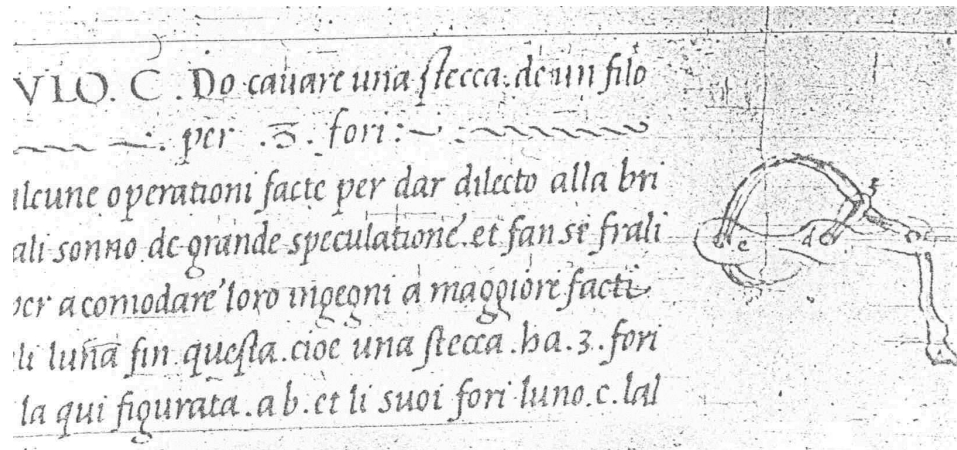 VLO. C. Do cauare una stecca. de un filo
per .3. fori:
alcune operationi facte per dar dilecto alla bri
ali sonno de grande speculatione. et fan se fra li
per acomodare loro ingegni a maggiore facti
li luna fin questa. cioe una stecca. ha .3. fori
la qui figurata. a b. et li suoi fori luno. c. lal
e d